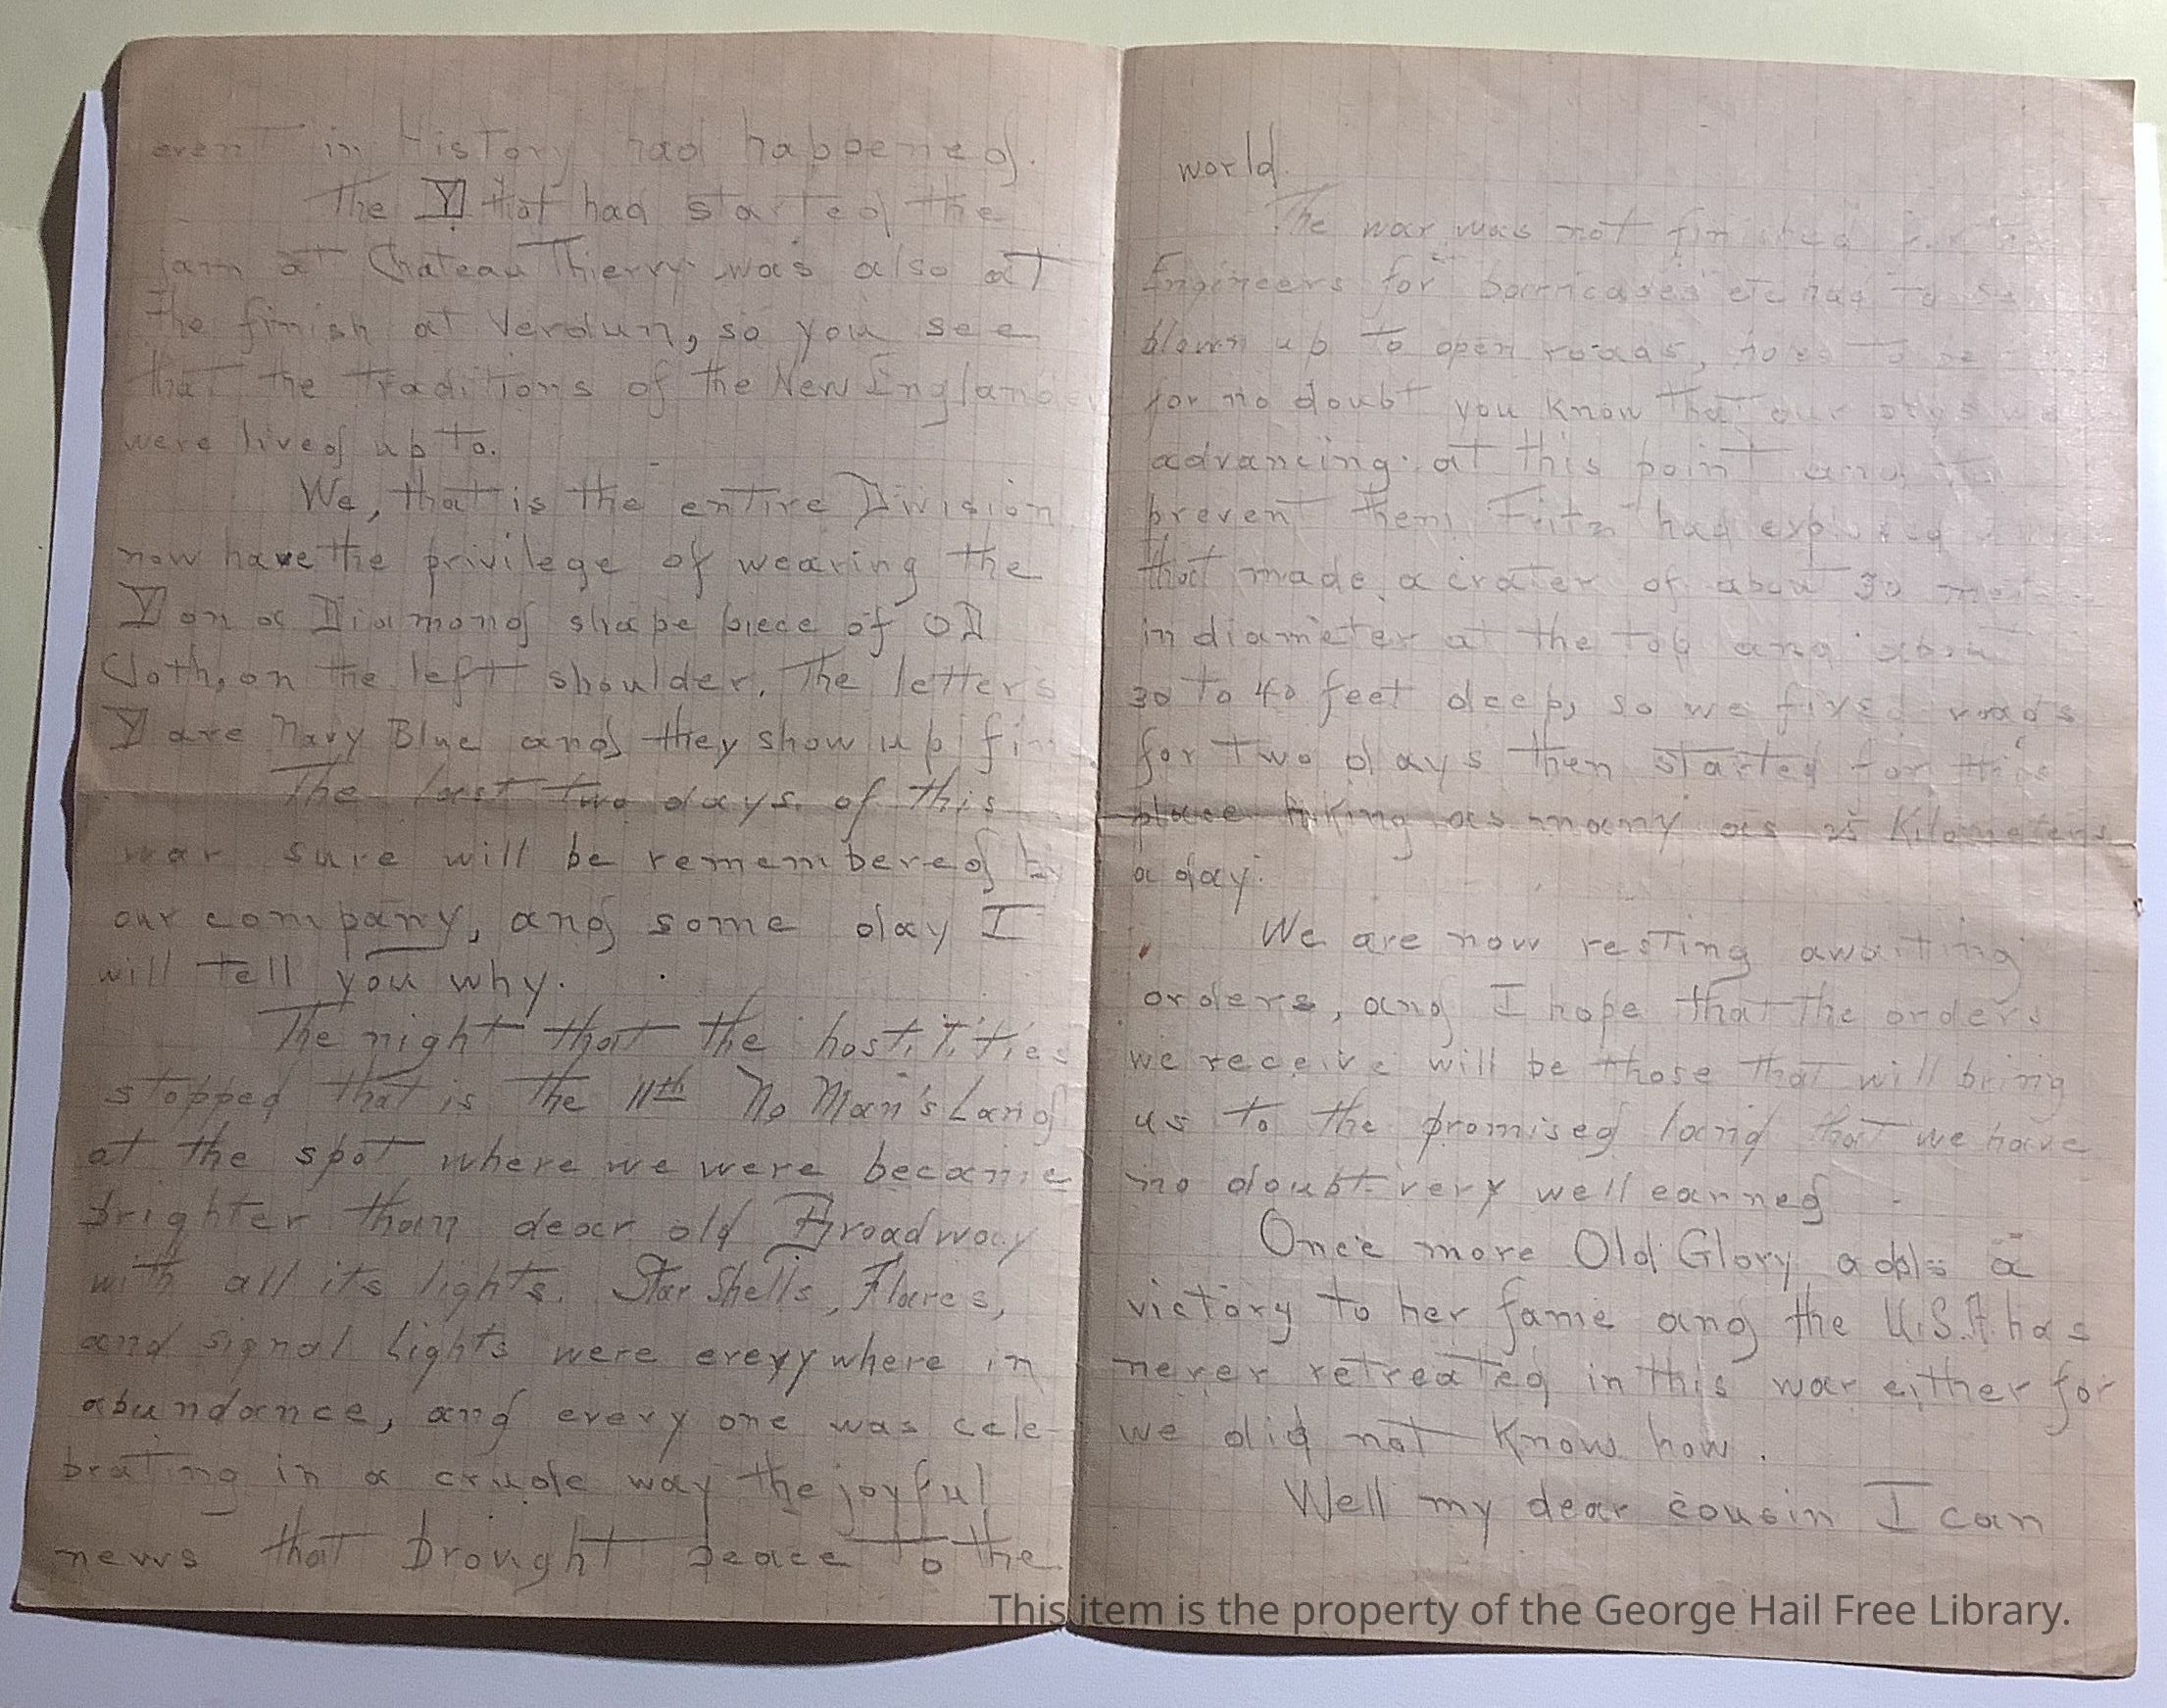 event in History had happened.
The YD that had started the
jam at Chateau Thierry was also at
the finish at Verdun, so you see
that the traditions of the New England
were lived up to.
We, that is the entire Division
now have the privilege of wearing the
YD on a Diamond shape piece of OD
Cloth, on the left shoulder. The letters
YD are Navy Blue and they show up
The last two days of this
war sure will be remembered by
our company, and some day I
will tell you why.
The night that the hostilities
stopped that is the 11th No Man's Land
at the spot where we were became
brighter than dear old Broadway
with all its lights. Star Shells, Flares,
and signal lights were everywhere in
abundance, and every one was cele-
brating in a crude way the joyful
news that brought peace to the
world.
The war was not finished
Engineers for barricades etc had to be
blown up to open roads,
for no doubt you know that our
advancing at this point and to
prevent them Fritz had exploded
that made a crater of about 30
in diameter at the top and about
30 to 40 feet deep, so we fixed roads
for two days then started for this
place hiking as many as 25 Kilometers
a day.
We are now resting awaiting
orders, and I hope that the orders
we receive will be those that will bring
us to the promised land that we have
no doubt very well earned
Once more Old Glory adds a
victory to her fame and the U.S.A has
never retreated in this war either for
we did not know how.
Well my dear cousin I can
This item is the property of the George Hail Free Library.